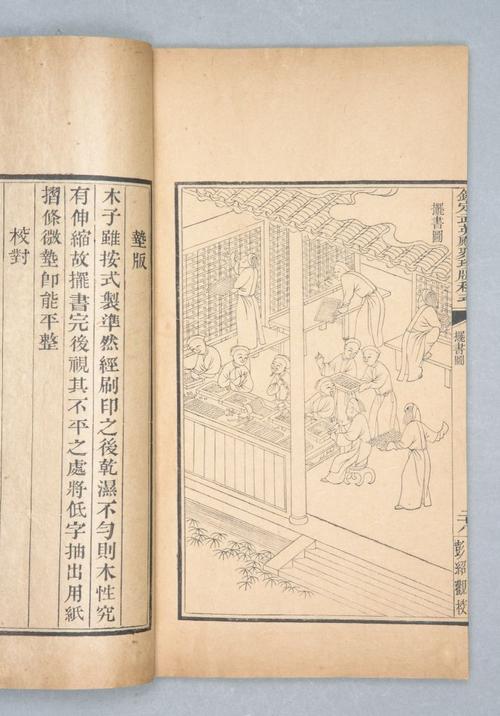 欽定武英殿聚珍版程式
擺書圖
彭紹觀校
擺書圖
墊版
木子雖按式製準然經刷印之後乾濕不勻則木性究
有伸縮故擺書完後視其不平之處將低字抽出用紙
摺條微墊卽能平整
校對